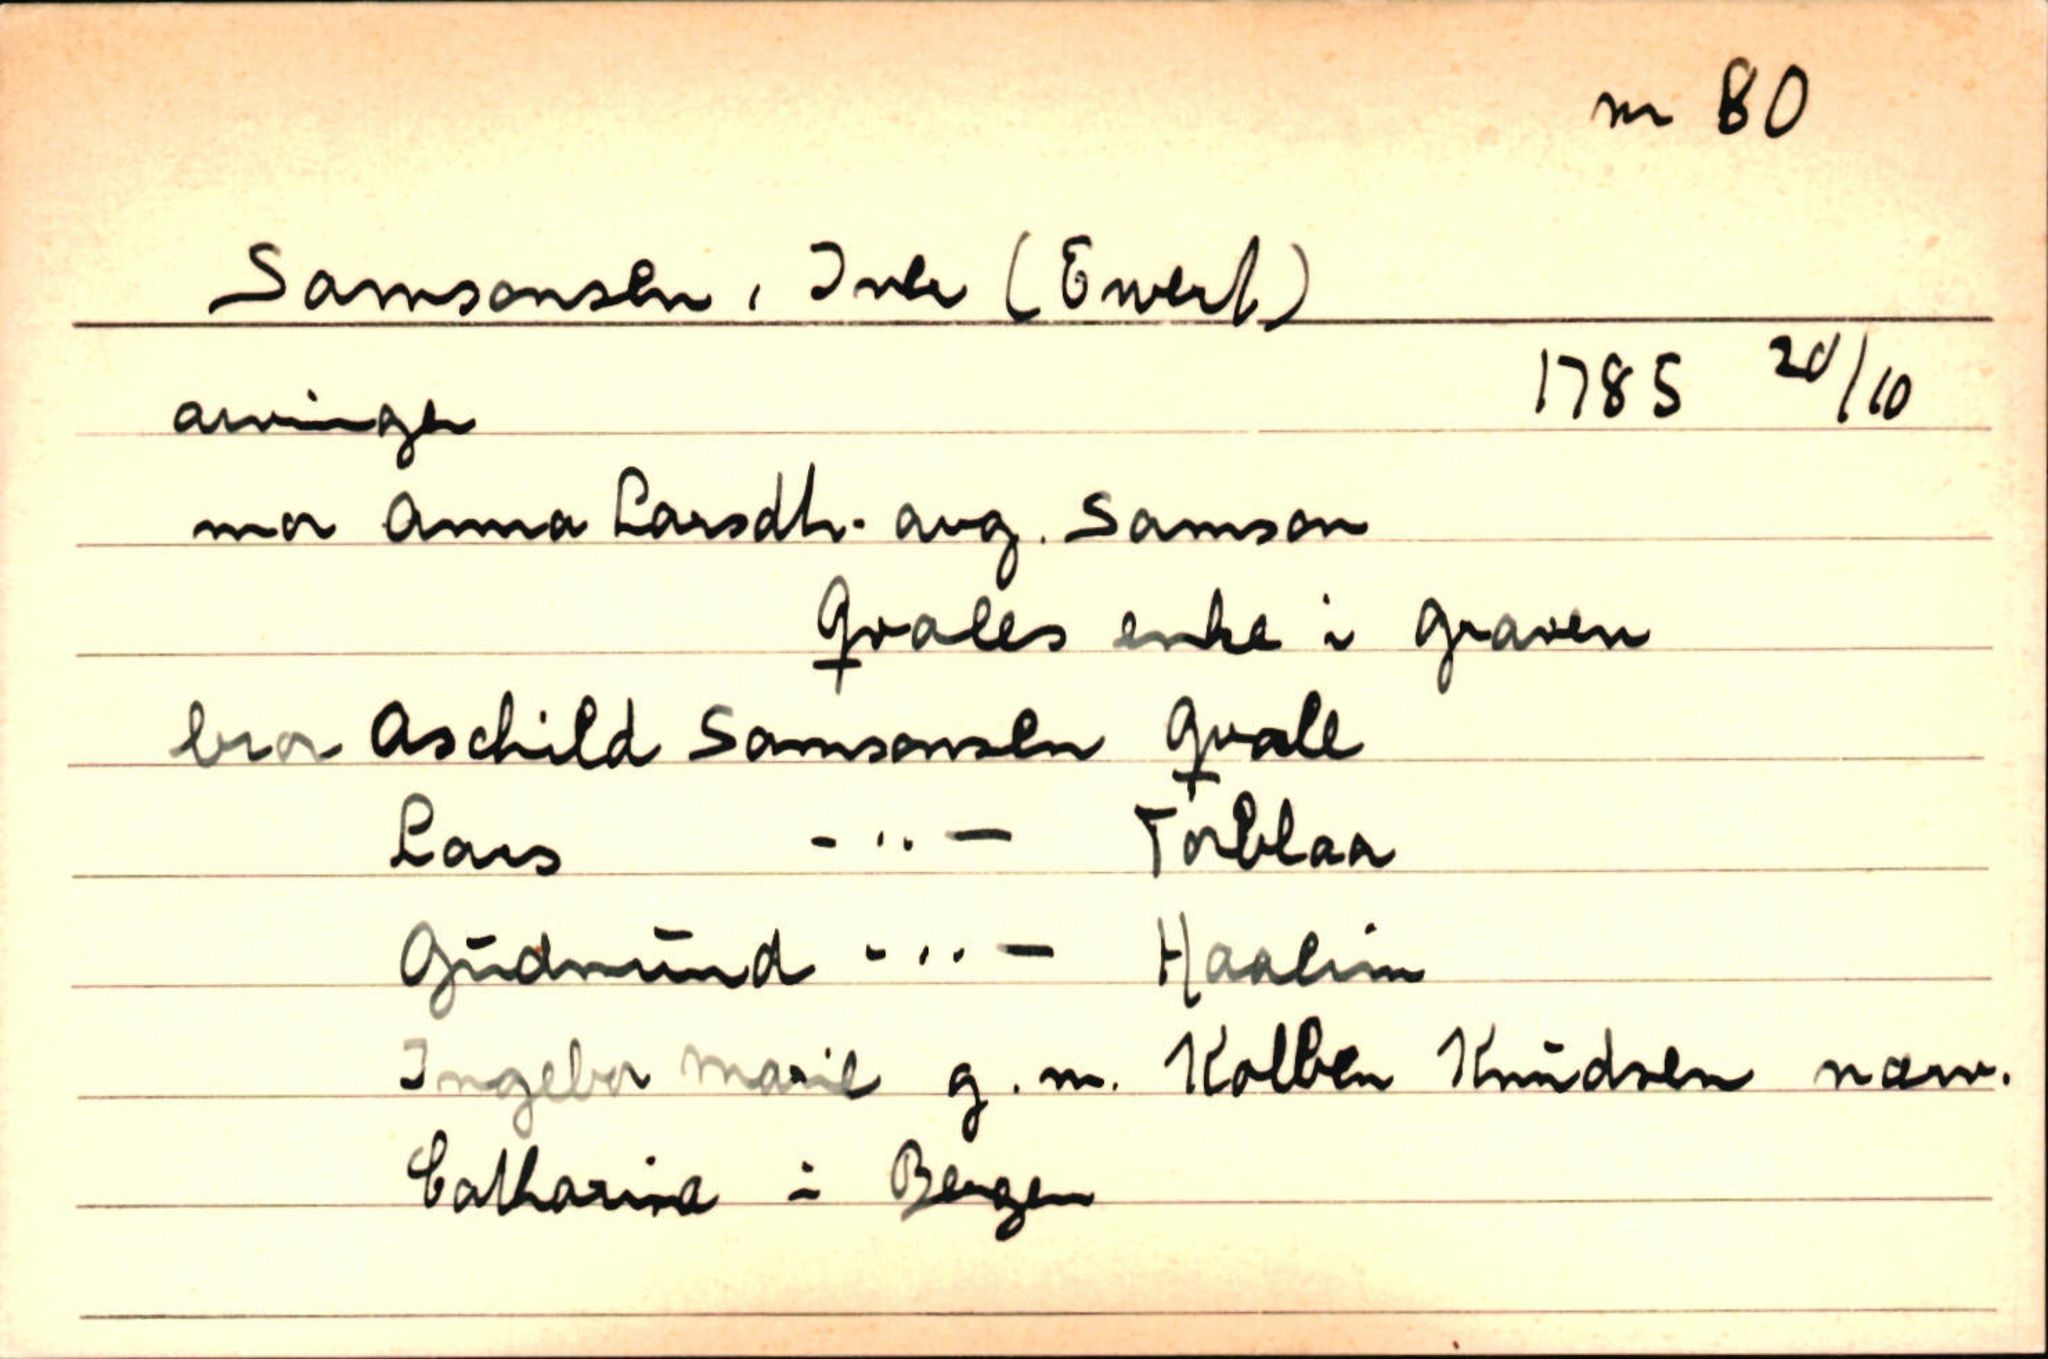 nr 80
Samsonsen, Iver (Ewert)
1785 20/10
arvinger
mor Anna Larsdtr. avg. Samson
Qvales enke i Graven
bror Aschild Samsonsen Qvale
Lars -..- Torblaa
Gudmund -..- Haaheim
Ingebor Marie g.m. Kolben Knudsen nærv.
Catharina i Bergen